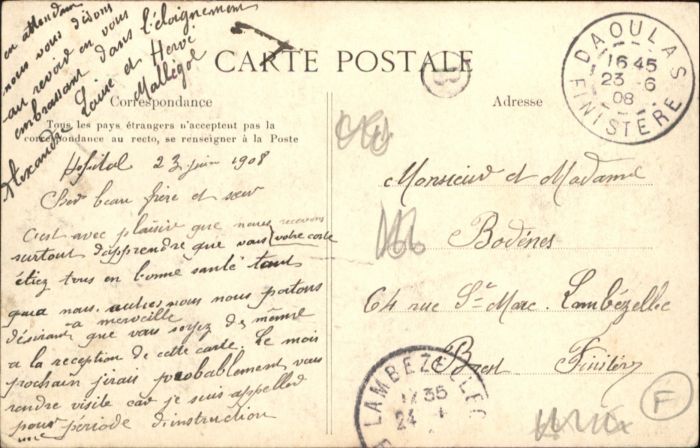 CARTE POSTALE
Correspondance
Tous les pays étrangers n'acceptent pas la
correspondance au recto, se renseigner à la Poste
Adresse
Hopital 23 juin 1908
Cher beau frère et sœur
C'est avec plaisir que nous recevons
votre carte
surtout d'apprendre que vous
étiez tous en bonne santé tant
qua nous. autres nous nous portons
à merveille
désirant que vous soyez de même
a la réception de cette carte. Le mois
prochain jirais probablement vous
rendre visite car je suis appelled
pour une période d'instruction
en attendant
nous vous disons
au revoir en vous
embrassant dans l'éloignement
Alexandre Louise et Hervé
Malligol
Monsieur et Madame
Bodénes
64 rue St Marc. Lambézellec
Brest Finistère
DAOULAS
16 45
23 - 6
08
FINISTÈRE
LAMBEZELLEC
12 35
24
B
F